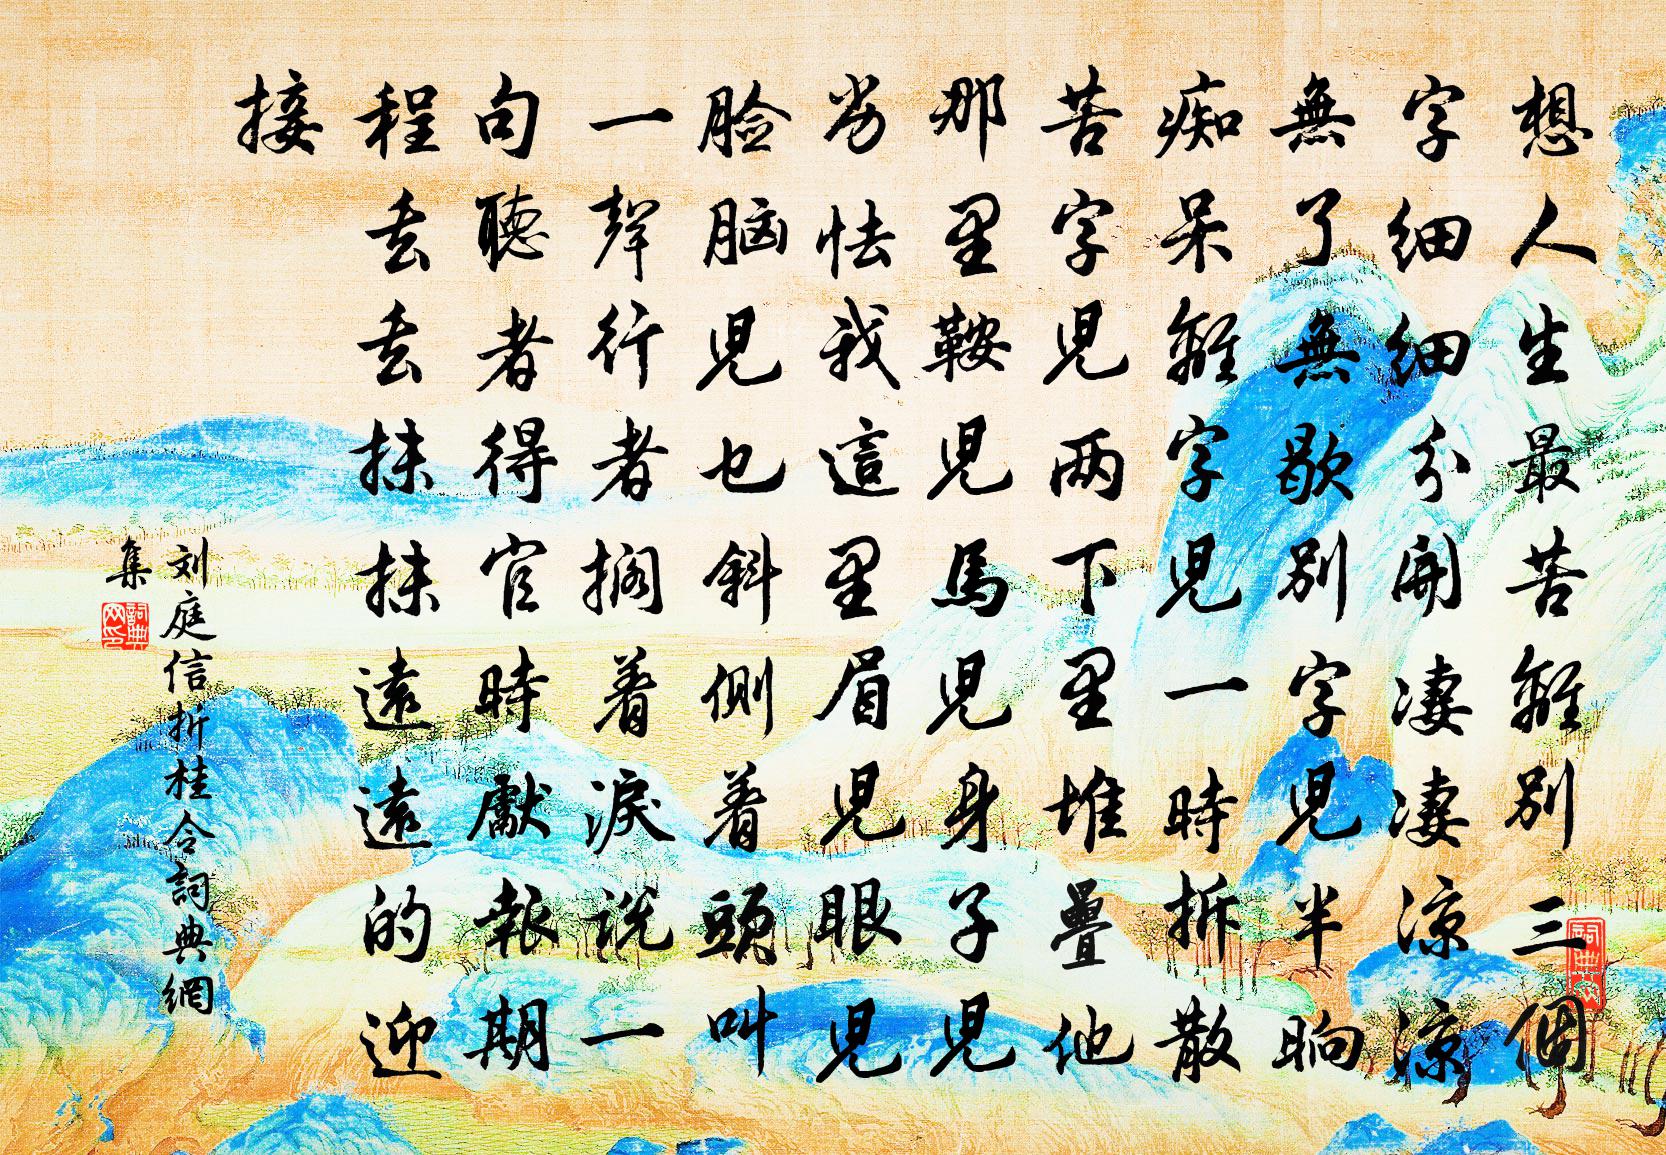 想人生最苦離別三個
字細細分開凄凄涼涼
無了無歇別字兒半晌
痴呆離字兒一時拆散
苦字兒两下里堆疊他
那里鞍兒馬兒身子兒
劣怯我這里眉兒眼兒
脸脑兒乜斜側着頭叫
一聲行者擱着淚説一
句聽者得官時獻報期
程去去抹抹遠遠的迎
接
刘庭信折桂令詞典網
集